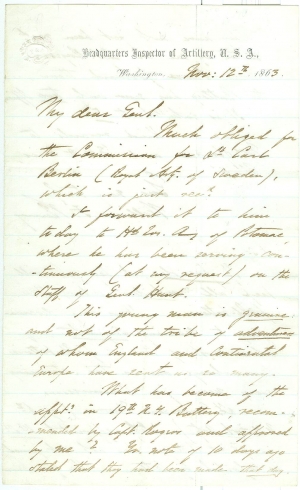 Headquarters Inspector of Artillery, U. S. A.,
Washington, Nov: 12th 1863.
My dear Genl.
Much obliged for
the Commission for Lt. Carl
Berlin (Royal Af. of Sweden),
which is just recd.
I forward it to him
to-day to Hd Qrs. Army of Potomac,
where he has been serving con-
tinuously (at my request) on the
Staff of Genl. Hunt.
This young man is genuine,
and not of the tribe of adventurers
of whom England and Continental
Europe have sent us so many.
What has become of the
appts. in 19th N.Y. Battery, recom-
mended by Capt. and approved
by me? Your note of 10 days ago
stated that they had been made that day.